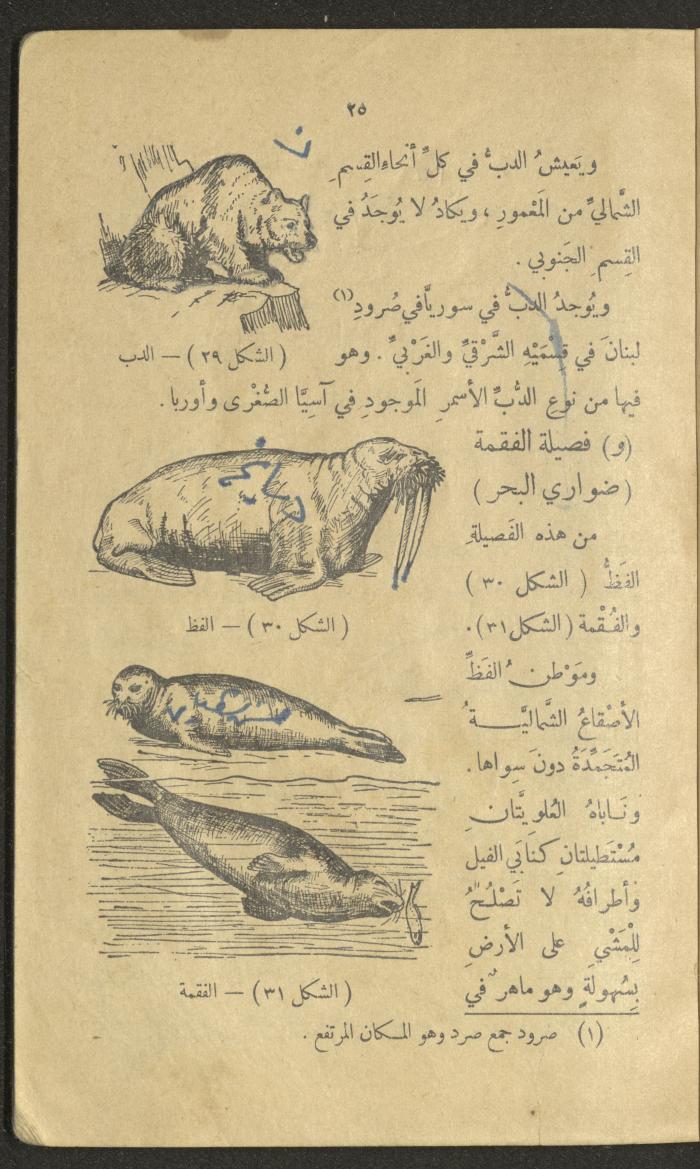 ٢٥
ويَعيشُ الدبُّ في كلِّ أنحاءِ القِسمِ
الشَّماليِّ من المَعْمورِ ، ويكادُ لا يُوجَدُ في
القِسمِ الجَنوبي .
ويُوجدُ الدبُّ في سوريَّا في صُرودِ (١)
لبنانَ في قِسْمَيْهِ الشَّرْقيِّ والغَرْبيِّ . وهو
(الشكل ٢٩) – الدب
فيها من نوعِ الدُّبِّ الأسمرِ المَوجودِ في آسِيَّا الصُّغْرى وأوربا .
(و) فصيلة الفقمة
(ضواري البحر)
من هذه الفَصيلةِ
الفَظُّ (الشكل ٣٠)
والفُقْمة (الشكل ٣١) .
(الشكل ٣٠) – الفظ
ومَوْطنُ الفَظِّ
الأصْقاعُ الشَّماليَّةُ
المُتَجَمِّدَةُ دونَ سِواها .
ونَاباهُ العُلويَّتانِ
مُسْتَطيلتانِ كنابَي الفيل
وأطرافُهُ لا تَصْلُحُ
لِلْمَشْيِ على الأرضِ
بِسُهولةٍ وهو ماهرٌ في
(الشكل ٣١) – الفقمة
(١) صرود جمع صرد وهو المكان المرتفع .